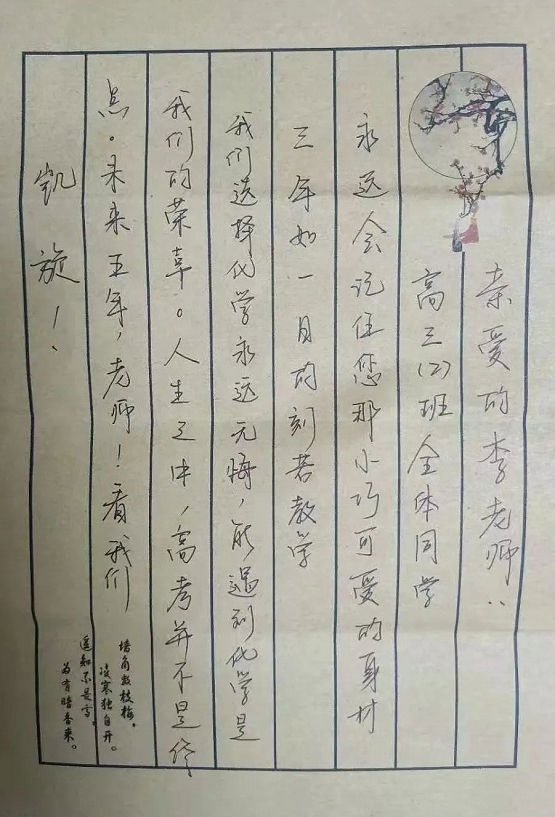 亲爱的李老师：
高三(2)班全体同学
永远会记住您那小巧可爱的身材
三年如一日的刻苦教学
我们选择化学永远无悔，能遇到化学是
我们的荣幸。人生之中，高考并不是终
点。未来五年，老师！看我们
凯旋！
墙角数枝梅，
凌寒独自开。
遥知不是雪，
为有暗香来。